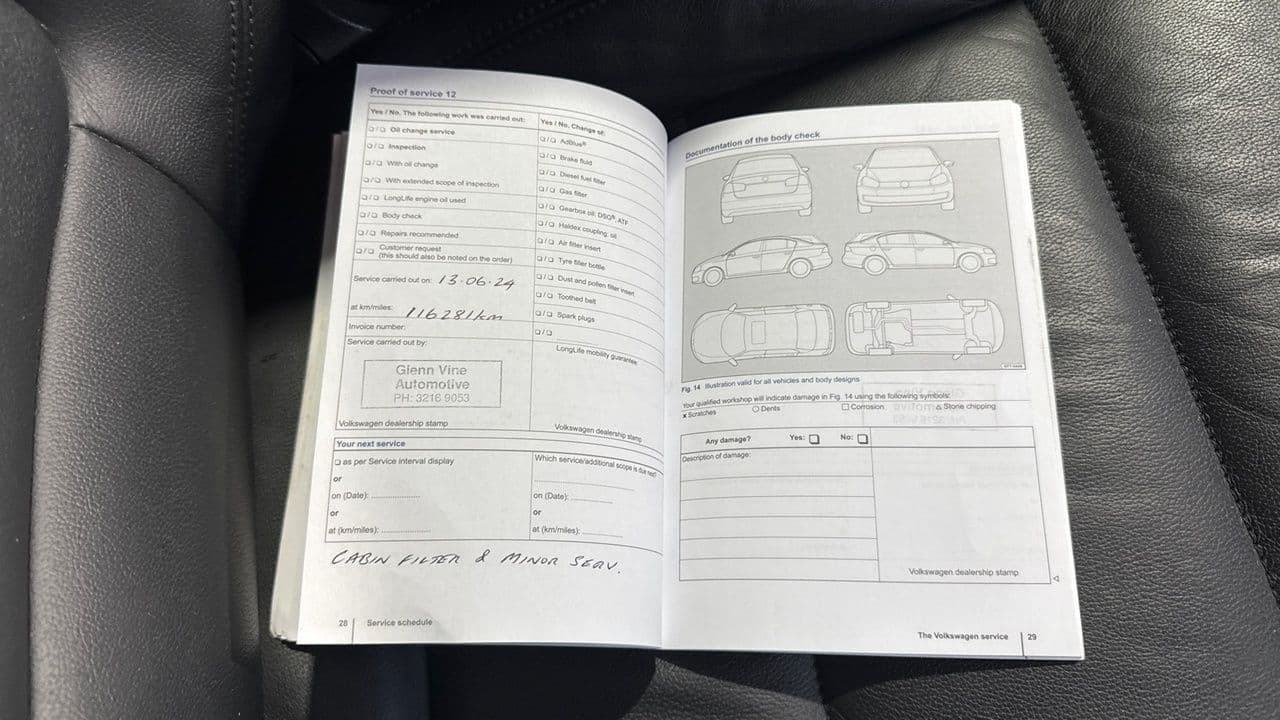 Proof of service 12
Yes / No. The following work was carried out:
❑/❑ Oil change service
❑/❑ Inspection
❑/❑ With oil change
❑/❑ With extended scope of inspection
❑/❑ LongLife engine oil used
❑/❑ Body check
❑/❑ Repairs recommended
❑/❑ Customer request
(this should also be noted on the order)
Service carried out on: 13.06.24
at km/miles: 116281km
Invoice number:
Service carried out by:
Glenn Vine
Automotive
PH: 3216 9053
Volkswagen dealership stamp
Yes / No. Change of:
❑/❑ AdBlue®
❑/❑ Brake fluid
❑/❑ Diesel fuel filter
❑/❑ Gas filter
❑/❑ Gearbox oil: DSG®, ATF
❑/❑ Haldex coupling: oil
❑/❑ Air filter insert
❑/❑ Tyre filler bottle
❑/❑ Dust and pollen filter insert
❑/❑ Toothed belt
❑/❑ Spark plugs
❑/❑
LongLife mobility guarantee
Volkswagen dealership stamp
Your next service
❑ as per Service interval display
or
on (Date):
or
at (km/miles):
Which service/additional scope is due next?
on (Date):
or
at (km/miles):
CABIN FILTER & MINOR SERV.
28 Service schedule
Documentation of the body check
Fig. 14 Illustration valid for all vehicles and body designs
Your qualified workshop will indicate damage in Fig. 14 using the following symbols:
x Scratches ○ Dents □ Corrosion △ Stone chipping
Any damage? Yes: ❑ No: ❑
Description of damage:
Volkswagen dealership stamp
The Volkswagen service 29